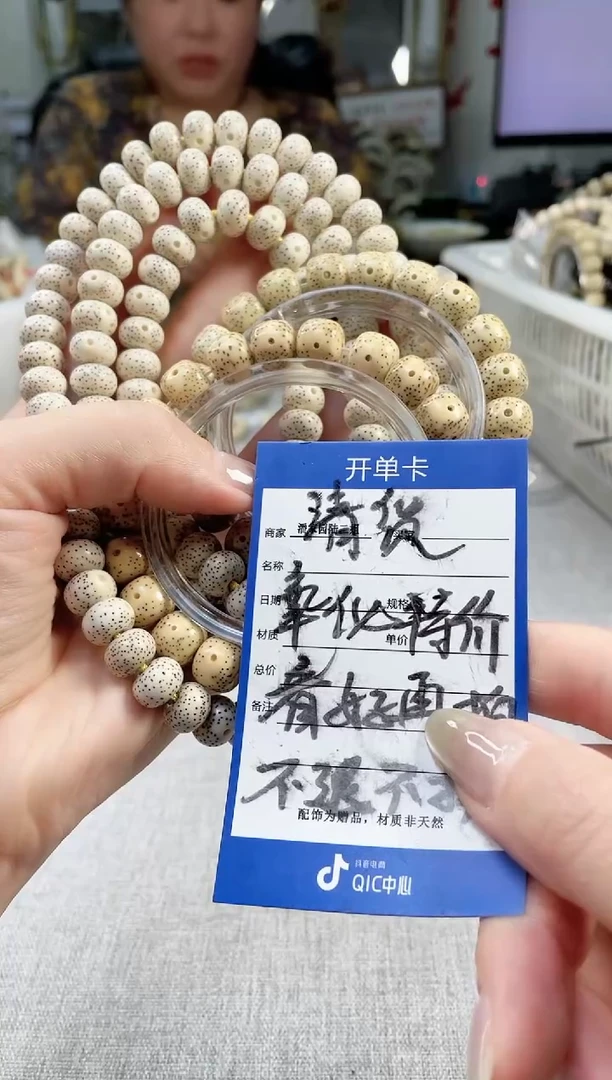 开单卡
商家
清货
名称
日期
规格
特价
材质
单价
总价
看好再拍
备注
不退不换
配饰为赠品，材质非天然
抖音电商
QIC中心